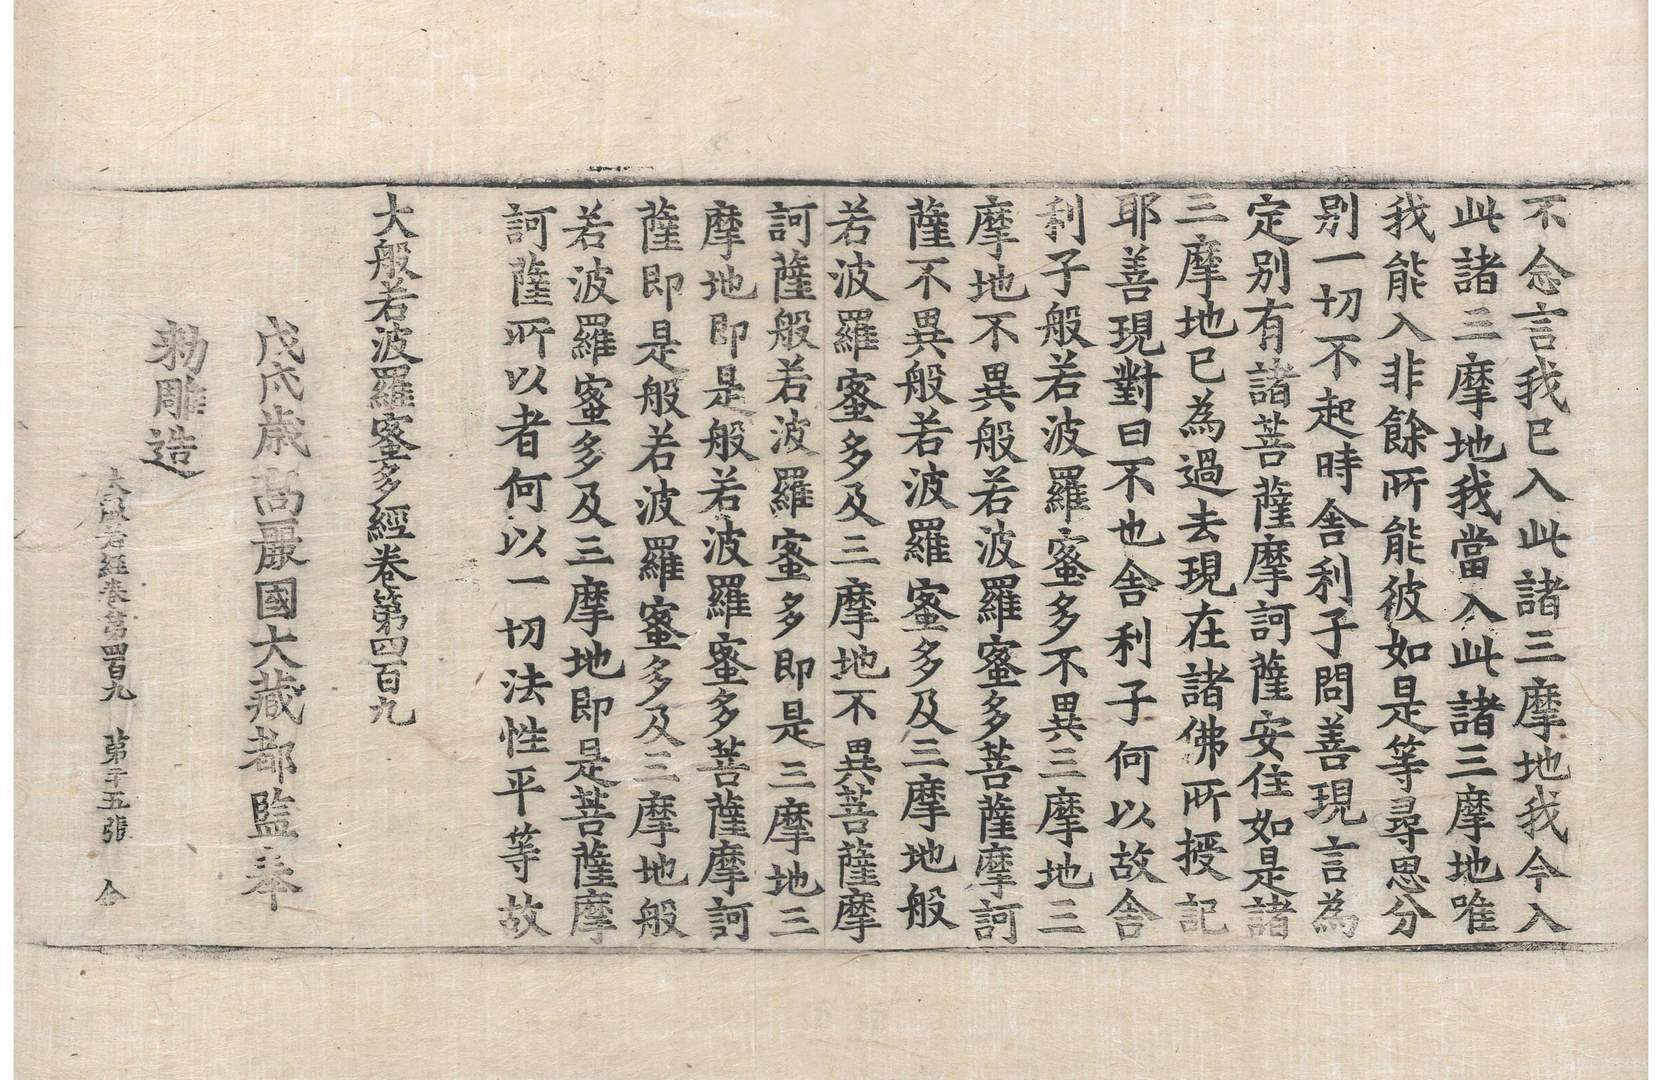 不念言我已入此諸三摩地我今入
此諸三摩地我當入此諸三摩地唯
我能入非餘所能彼如是等尋思分
別一切不起時舍利子問善現言為
定別有諸菩薩摩訶薩安住如是諸
三摩地已為過去現在諸佛所授記
耶善現對曰不也舍利子何以故舍
利子般若波羅蜜多不異三摩地三
摩地不異般若波羅蜜多菩薩摩訶
薩不異般若波羅蜜多及三摩地般
若波羅蜜多及三摩地不異菩薩摩
訶薩般若波羅蜜多即是三摩地三
摩地即是般若波羅蜜多菩薩摩訶
薩即是般若波羅蜜多及三摩地般
若波羅蜜多及三摩地即是菩薩摩
訶薩所以者何以一切法性平等故
大般若波羅蜜多經卷第四百九
戊戌歲高麗國大藏都監奉
勑雕造
大般若經卷第四百九 第二十五張 合